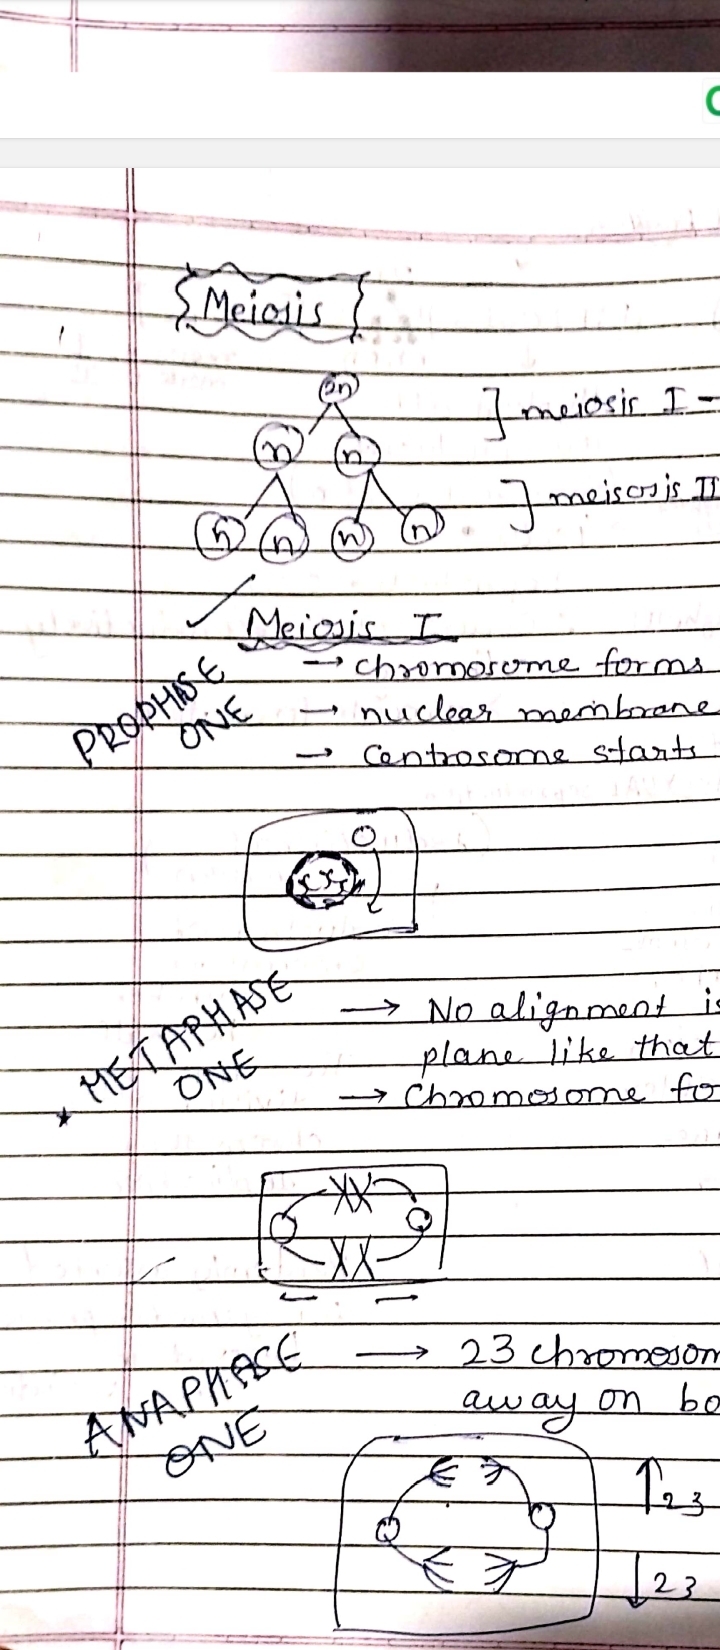 Meiosis
2n
n n
] meiosis I -
n n n n
] meiscosis II
Meiosis I
PROPHASE ONE
→ chromosome forms
→ nuclear membrane
→ Centrosome starts
METAPHASE ONE
→ No alignment is
plane like that
→ Chromosome fo
ANAPHASE ONE
→ 23 chromosom
away on bo
↑23
↓23